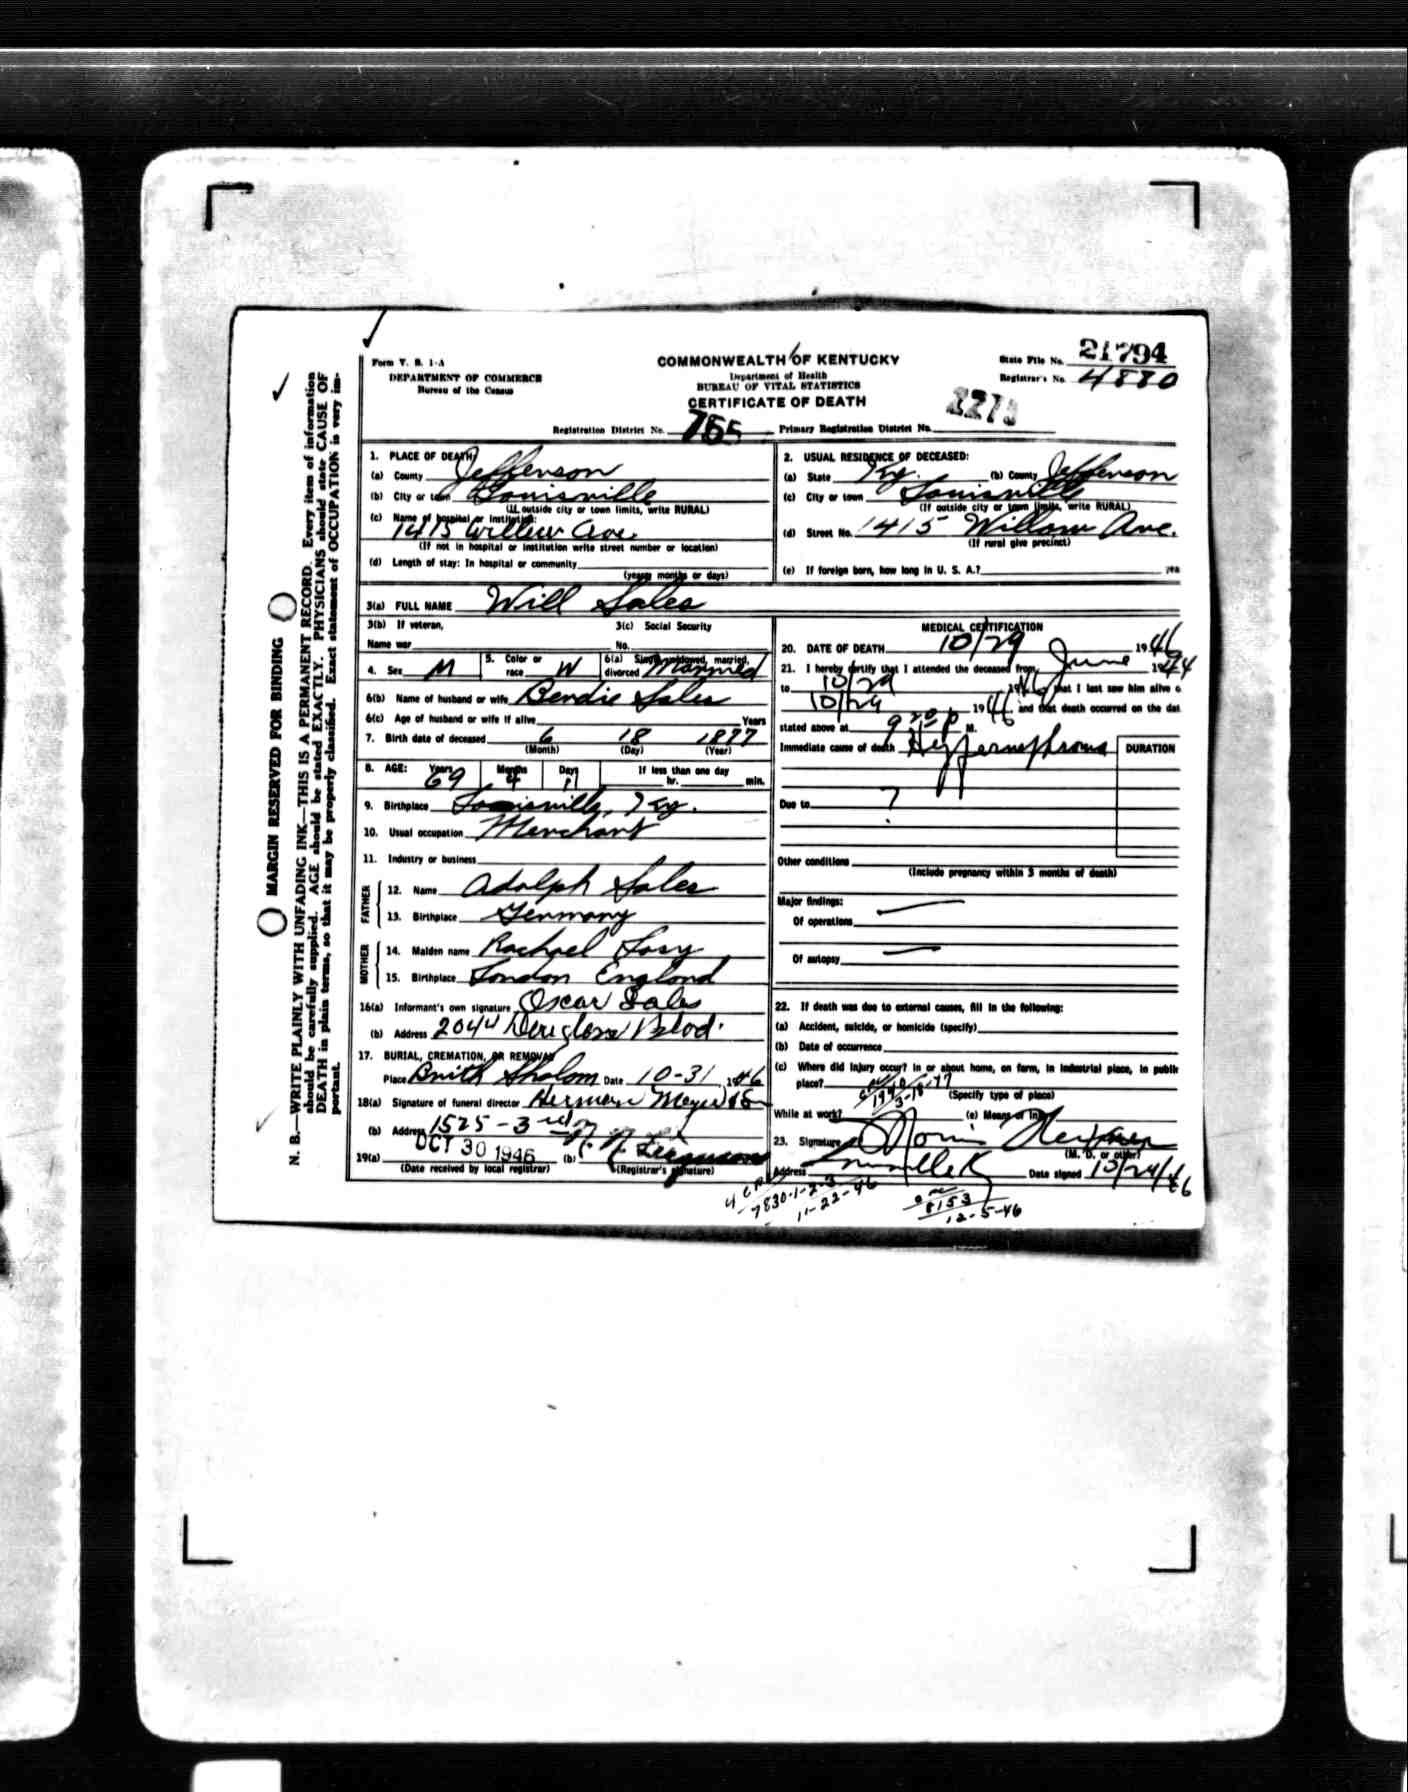 MARGIN RESERVED FOR BINDING
N. B.—WRITE PLAINLY WITH UNFADING INK—THIS IS A PERMANENT RECORD. Every item of information
should be carefully supplied. AGE should be stated EXACTLY. PHYSICIANS should state CAUSE OF
DEATH in plain terms, so that it may be properly classified. Exact statement of OCCUPATION is very im-
portant.
Form V. S. 1-A
DEPARTMENT OF COMMERCE
Bureau of the Census
COMMONWEALTH OF KENTUCKY
Department of Health
BUREAU OF VITAL STATISTICS
CERTIFICATE OF DEATH
State File No. 21794
Registrar's No. 4880
Registration District No. 765 Primary Registration District No.
1. PLACE OF DEATH
(a) County Jefferson
(b) City or town Louisville
(If outside city or town limits, write RURAL)
(c) Name of hospital or institution:
1415 Willow Ave.
(If not in hospital or institution write street number or location)
(d) Length of stay: In hospital or community
(years months or days)
2. USUAL RESIDENCE OF DECEASED:
(a) State Ky. (b) County Jefferson
(c) City or town Louisville
(If outside city or town limits, write RURAL)
(d) Street No. 1415 Willow Ave.
(If rural give precinct)
(e) If foreign born, how long in U. S. A.? yea
3(a) FULL NAME Will Sales
3(b) If veteran,
Name war
3(c) Social Security
No.
4. Sex M 5. Color or race W 6(a) Single, widowed, married, divorced Married
6(b) Name of husband or wife Berdie Sales
6(c) Age of husband or wife if alive Years
7. Birth date of deceased 6 18 1877
(Month) (Day) (Year)
8. AGE: Years 69 Months 4 Days 11 If less than one day
hr. min.
9. Birthplace Louisville, Ky.
10. Usual occupation Merchant
11. Industry or business
FATHER
12. Name Adolph Sales
13. Birthplace Germany
MOTHER
14. Maiden name Rachael
15. Birthplace London England
16(a) Informant's own signature Oscar Sales
(b) Address 2044 Douglass Blvd.
17. BURIAL, CREMATION, OR REMOVAL
Place Brith Sholom Date 10-31 1946
18(a) Signature of funeral director Herman Meyer
(b) Address 1525-3rd
19(a) OCT 30 1946 (b)
(Date received by local registrar) (Registrar's signature)
MEDICAL CERTIFICATION
20. DATE OF DEATH 10/29 1946
21. I hereby certify that I attended the deceased from June 1944
to 10/29 1946 that I last saw him alive o
10/29 1946 and that death occurred on the dat
stated above at 9 P M.
Immediate cause of death Hypernephroma DURATION
Due to ?
Other conditions
(Include pregnancy within 3 months of death)
Major findings:
Of operations
Of autopsy
22. If death was due to external causes, fill in the following:
(a) Accident, suicide, or homicide (specify)
(b) Date of occurrence
(c) Where did injury occur? In or about home, on farm, in industrial place, in public
place?
(Specify type of place)
While at work? (e) Means of
23. Signature
(M. D. or other)
Address Louisville Ky Date signed
7830-1-2-3
11-22-46
8153
12-5-46